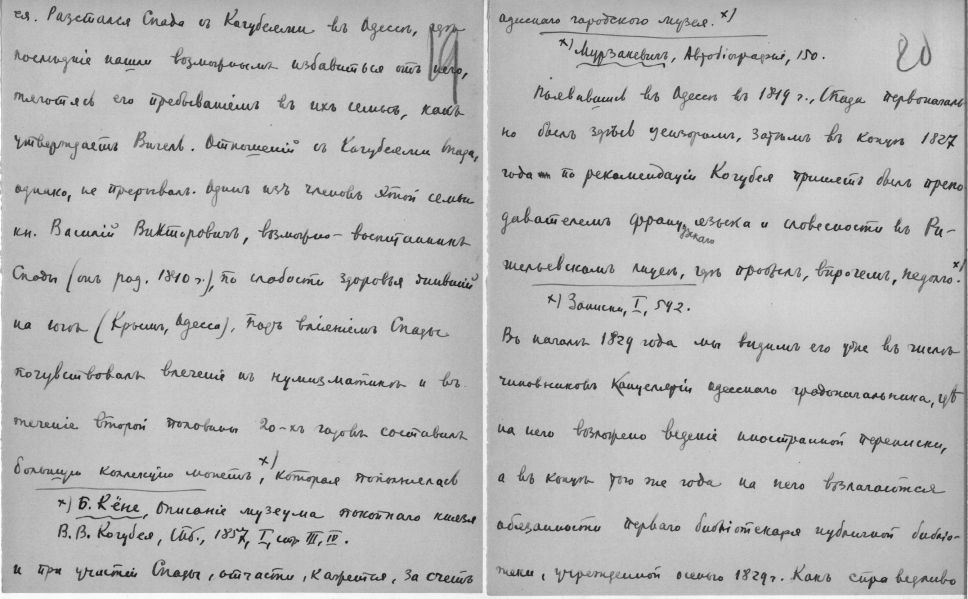 ся. Разстался Спада съ Кочубеями въ Одессѣ, гдѣ
19
послѣдніе нашли возможнымъ избавиться отъ него,
тяготясь его пребываніемъ въ ихъ семьѣ, какъ
утверждаетъ Вигель. Отношеній съ Кочубеями Спада,
однако, не прерывалъ. Одинъ изъ членовъ этой семьи
кн. Василій Викторовичъ, возможно – воспитанникъ
Спады (онъ род. 1810 г.), по слабости здоровья жившій
на югѣ (Крымъ, Одесса), подъ вліяніемъ Спады
почувствовалъ влеченіе къ нумизматикѣ и въ
теченіе второй половины 20-хъ годовъ составилъ
большую коллекцію монетъ,х) которая пополнялась
х) Б. Кёне, Описаніе музеума покойнаго князя
В.В. Кочубея, Спб., 1857, I, стр III, IV.
и при участіи Спады, отчасти, кажется, за счетъ
одесскаго городского музея.х)
20
х) Мурзакевичъ, Автобіографія, 150.
Появившись въ Одессѣ въ 1819 г., Спада первоначаль
но былъ здѣсь цензоромъ, затѣмъ въ концѣ 1827
года по рекомендаціи Кочубея принятъ былъ препо
давателемъ французскаго языка и словесности въ Ри-
шельевскомъ лицеѣ, гдѣ пробылъ, впрочемъ, недолго.х)
х) Записки, I, 542.
Въ началѣ 1829 года мы видимъ его уже въ числѣ
чиновниковъ Канцеляріи одесскаго градоначальника, гдѣ
на него возложено веденіе иностранной переписки,
а въ концѣ того же года на него возлагаются
обязанности перваго библіотекаря публичной библіо-
теки, учрежденной осенью 1829 г. Какъ справедливо